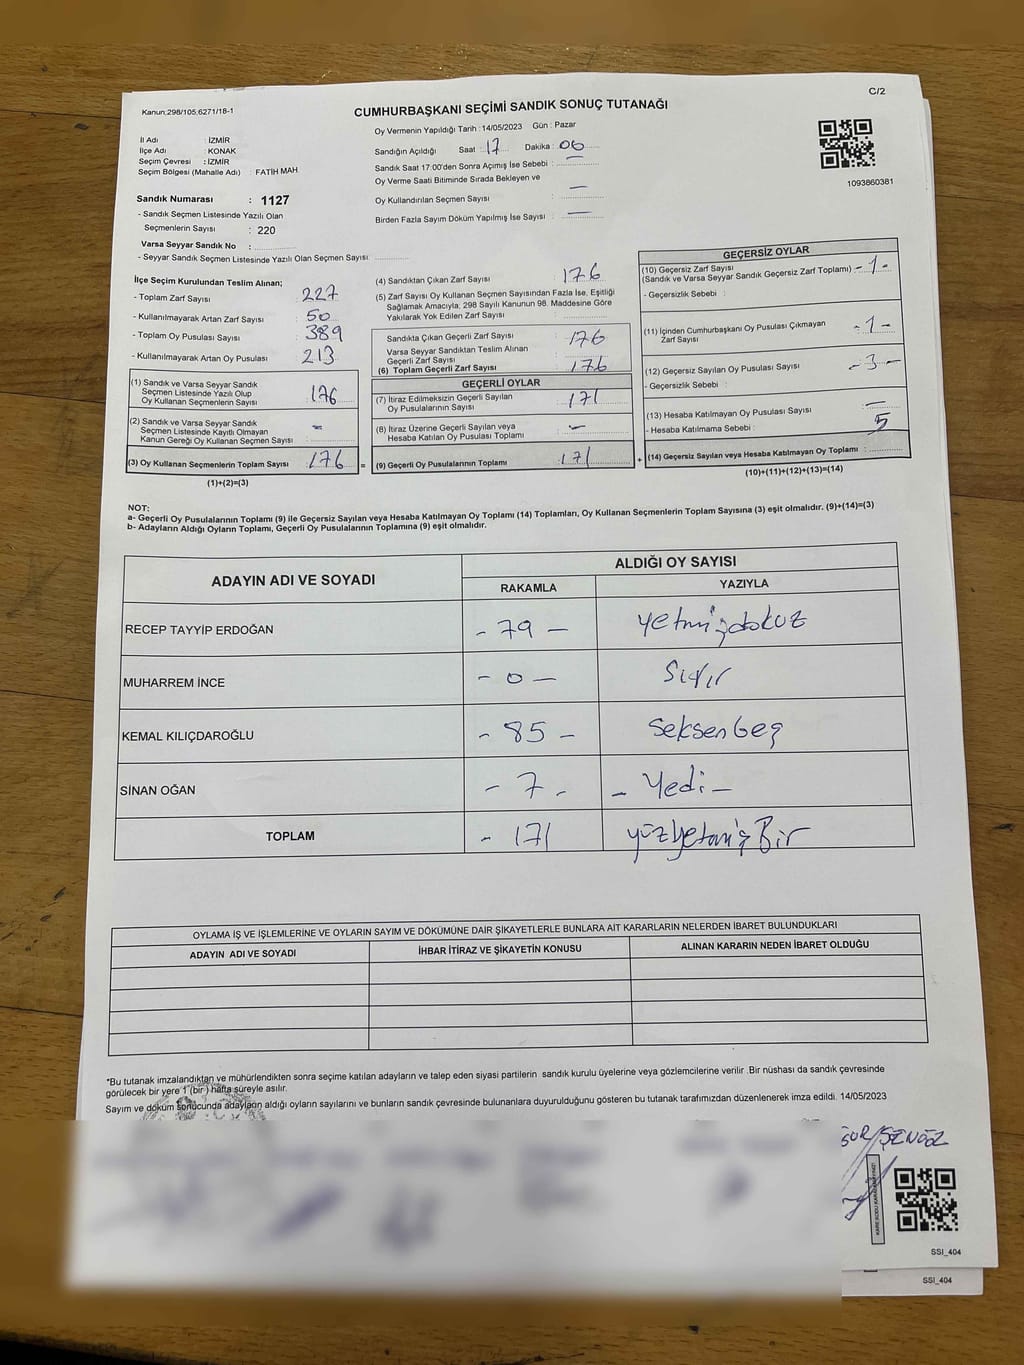 C/2
Kanun:298/105,6271/18-1
CUMHURBAŞKANI SEÇİMİ SANDIK SONUÇ TUTANAĞI
Oy Vermenin Yapıldığı Tarih :14/05/2023 Gün : Pazar
İl Adı : İZMİR
İlçe Adı : KONAK
Seçim Çevresi : İZMİR
Seçim Bölgesi (Mahalle Adı) : FATİH MAH
Sandığın Açıldığı Saat : 17 Dakika : 06
Sandık Saat 17:00'den Sonra Açımış İse Sebebi : —
Oy Verme Saati Bitiminde Sırada Bekleyen ve
Oy Kullandırılan Seçmen Sayısı : —
Birden Fazla Sayım Döküm Yapılmış İse Sayısı : —
1093860381
Sandık Numarası : 1127
- Sandık Seçmen Listesinde Yazılı Olan
Seçmenlerin Sayısı : 220
Varsa Seyyar Sandık No :
- Seyyar Sandık Seçmen Listesinde Yazılı Olan Seçmen Sayısı :
İlçe Seçim Kurulundan Teslim Alınan;
- Toplam Zarf Sayısı : 227
- Kullanılmayarak Artan Zarf Sayısı : 50
- Toplam Oy Pusulası Sayısı : 389
- Kullanılmayarak Artan Oy Pusulası : 213
(1) Sandık ve Varsa Seyyar Sandık
Seçmen Listesinde Yazılı Olup
Oy Kullanan Seçmenlerin Sayısı : 176
(2) Sandık ve Varsa Seyyar Sandık
Seçmen Listesinde Kayıtlı Olmayan
Kanun Gereği Oy Kullanan Seçmen Sayısı : -
(3) Oy Kullanan Seçmenlerin Toplam Sayısı : 176 =
(1)+(2)=(3)
(4) Sandıktan Çıkan Zarf Sayısı : 176
(5) Zarf Sayısı Oy Kullanan Seçmen Sayısından Fazla İse, Eşitliği
Sağlamak Amacıyla; 298 Sayılı Kanunun 98. Maddesine Göre
Yakılarak Yok Edilen Zarf Sayısı :
Sandıkta Çıkan Geçerli Zarf Sayısı : 176
Varsa Seyyar Sandıktan Teslim Alınan
Geçerli Zarf Sayısı :
(6) Toplam Geçerli Zarf Sayısı : 176
GEÇERLİ OYLAR
(7) İtiraz Edilmeksizin Geçerli Sayılan
Oy Pusulalarının Sayısı : 171
(8) İtiraz Üzerine Geçerli Sayılan veya
Hesaba Katılan Oy Pusulası Toplamı : -
(9) Geçerli Oy Pusulalarının Toplamı : 171 +
GEÇERSİZ OYLAR
(10) Geçersiz Zarf Sayısı
(Sandık ve Varsa Seyyar Sandık Geçersiz Zarf Toplamı) - 1 -
- Geçersizlik Sebebi :
(11) İçinden Cumhurbaşkanı Oy Pusulası Çıkmayan
Zarf Sayısı : - 1 -
(12) Geçersiz Sayılan Oy Pusulası Sayısı : - 3 -
- Geçersizlik Sebebi :
(13) Hesaba Katılmayan Oy Pusulası Sayısı : —
- Hesaba Katılmama Sebebi :
(14) Geçersiz Sayılan veya Hesaba Katılmayan Oy Toplamı : 5
(10)+(11)+(12)+(13)=(14)
NOT:
a- Geçerli Oy Pusulalarının Toplamı (9) ile Geçersiz Sayılan veya Hesaba Katılmayan Oy Toplamı (14) Toplamları, Oy Kullanan Seçmenlerin Toplam Sayısına (3) eşit olmalıdır. (9)+(14)=(3)
b- Adayların Aldığı Oyların Toplamı, Geçerli Oy Pusulalarının Toplamına (9) eşit olmalıdır.
ADAYIN ADI VE SOYADI ALDIĞI OY SAYISI
RAKAMLA YAZIYLA
RECEP TAYYİP ERDOĞAN - 79 - yetmişdokuz
MUHARREM İNCE - 0 - Sıfır
KEMAL KILIÇDAROĞLU - 85 - Seksenbeş
SİNAN OĞAN - 7 - - Yedi -
TOPLAM - 171 yüzyetmişBir
OYLAMA İŞ VE İŞLEMLERİNE VE OYLARIN SAYIM VE DÖKÜMÜNE DAİR ŞİKAYETLERLE BUNLARA AİT KARARLARIN NELERDEN İBARET BULUNDUKLARI
ADAYIN ADI VE SOYADI İHBAR İTİRAZ VE ŞİKAYETİN KONUSU ALINAN KARARIN NEDEN İBARET OLDUĞU
*Bu tutanak imzalandıktan ve mühürlendikten sonra seçime katılan adayların ve talep eden siyasi partilerin sandık kurulu üyelerine veya gözlemcilerine verilir .Bir nüshası da sandık çevresinde
görülecek bir yere 1 (bir ) hafta süreyle asılır.
Sayım ve döküm sonucunda adayların aldığı oyların sayılarını ve bunların sandık çevresinde bulunanlara duyurulduğunu gösteren bu tutanak tarafımızdan düzenlenerek imza edildi. 14/05/2023
ŞENÖZ
SSI_404
SSI_404